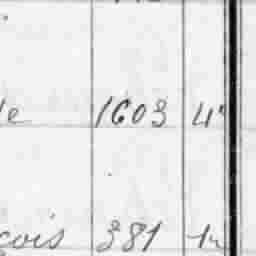 le 1603 4"
çois 381 1r